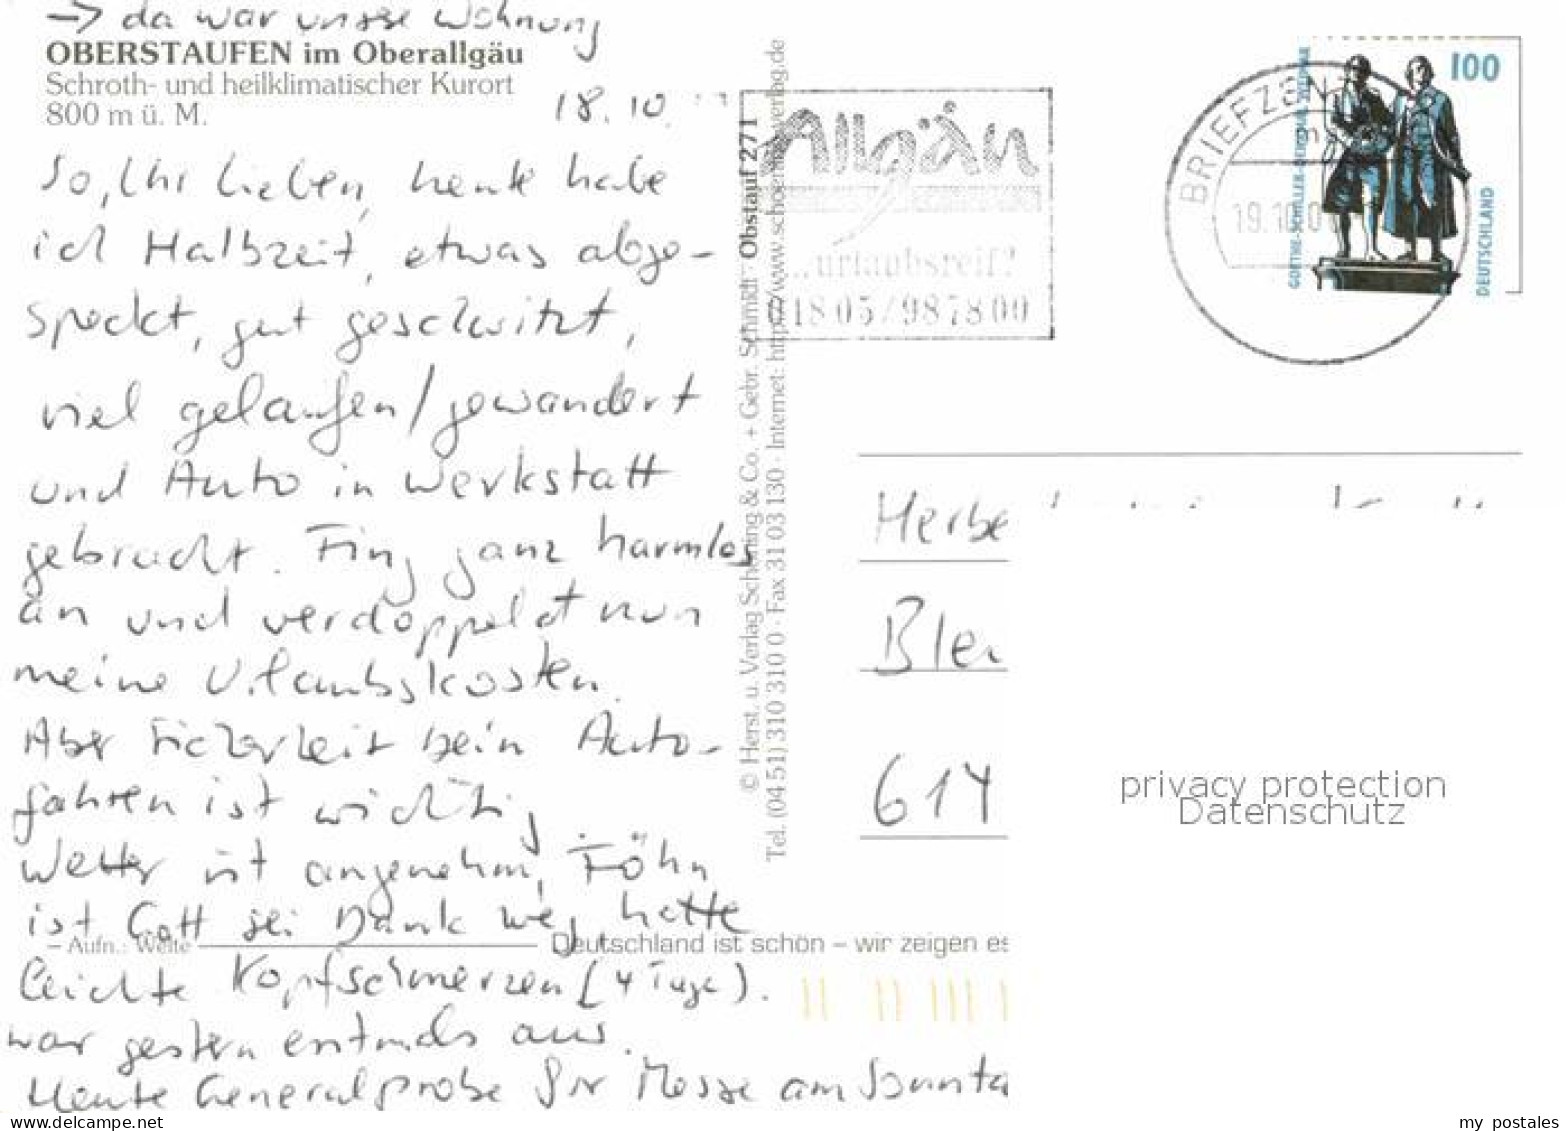 → da war unsere Wohnung
OBERSTAUFEN im Oberallgäu
Schroth- und heilklimatischer Kurort
800 m ü. M.
18.10.
So, Ihr Lieben, heute habe
ich Halbzeit, etwas abge-
speckt, gut geschwitzt,
viel gelaufen/gewandert
und Auto in Werkstatt
gebracht. Fing ganz harmlos
an und verdoppelt nun
meine Urlaubskosten.
Aber Sicherheit beim Auto-
fahren ist wichtig.
Wetter ist angenehm, Föhn
ist Gott sei Dank weg, hatte
leichte Kopfschmerzen (4 Tage).
war gestern erstmals aus.
Heute Generalprobe für Messe am Sonnta
Aufn.: Welte
Deutschland ist schön – wir zeigen es
© Herst. u. Verlag Schöning & Co. + Gebr. Schmidt · Obstauf 271
Tel. (04 51) 310 310 0 · Fax 31 03 130 · Internet: http://www.schoening-verlag.de
Allgäu
...urlaubsreif?
01805/987800
BRIEFZEN
19.10.0
100
GOETHE-SCHILLER-DENKMAL WEIMAR
DEUTSCHLAND
Herbe
Ble
614
privacy protection
Datenschutz
www.delcampe.net
my_postales